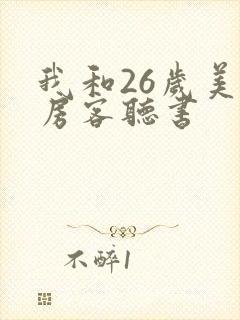 我和26歲美
房客聽書
不醉1